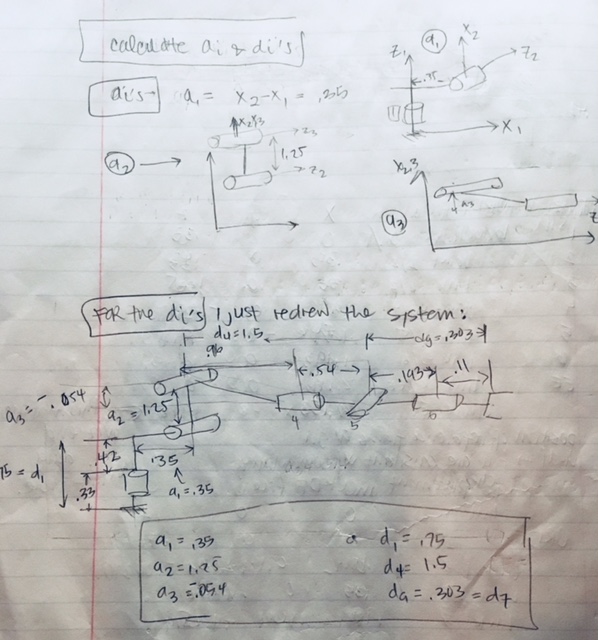 calculate ai & di's
ai's → a1 = x2-x1 = .35
a1
x2
z1
z2
x1
a2 →
x2x3
z3
1.25
z2
x2,3
a3
z
FOR the di's I just redrew the system:
d4=1.5
dG=.303
.96
.54
.193
.11
a3 = -.054
a2=1.25
4
5
6
.42
.35
75 = d1
.33
a1=.35
a1 = .35
a2 = 1.25
a3 = -.054
d1 = .75
d4 = 1.5
dG = .303 = d7